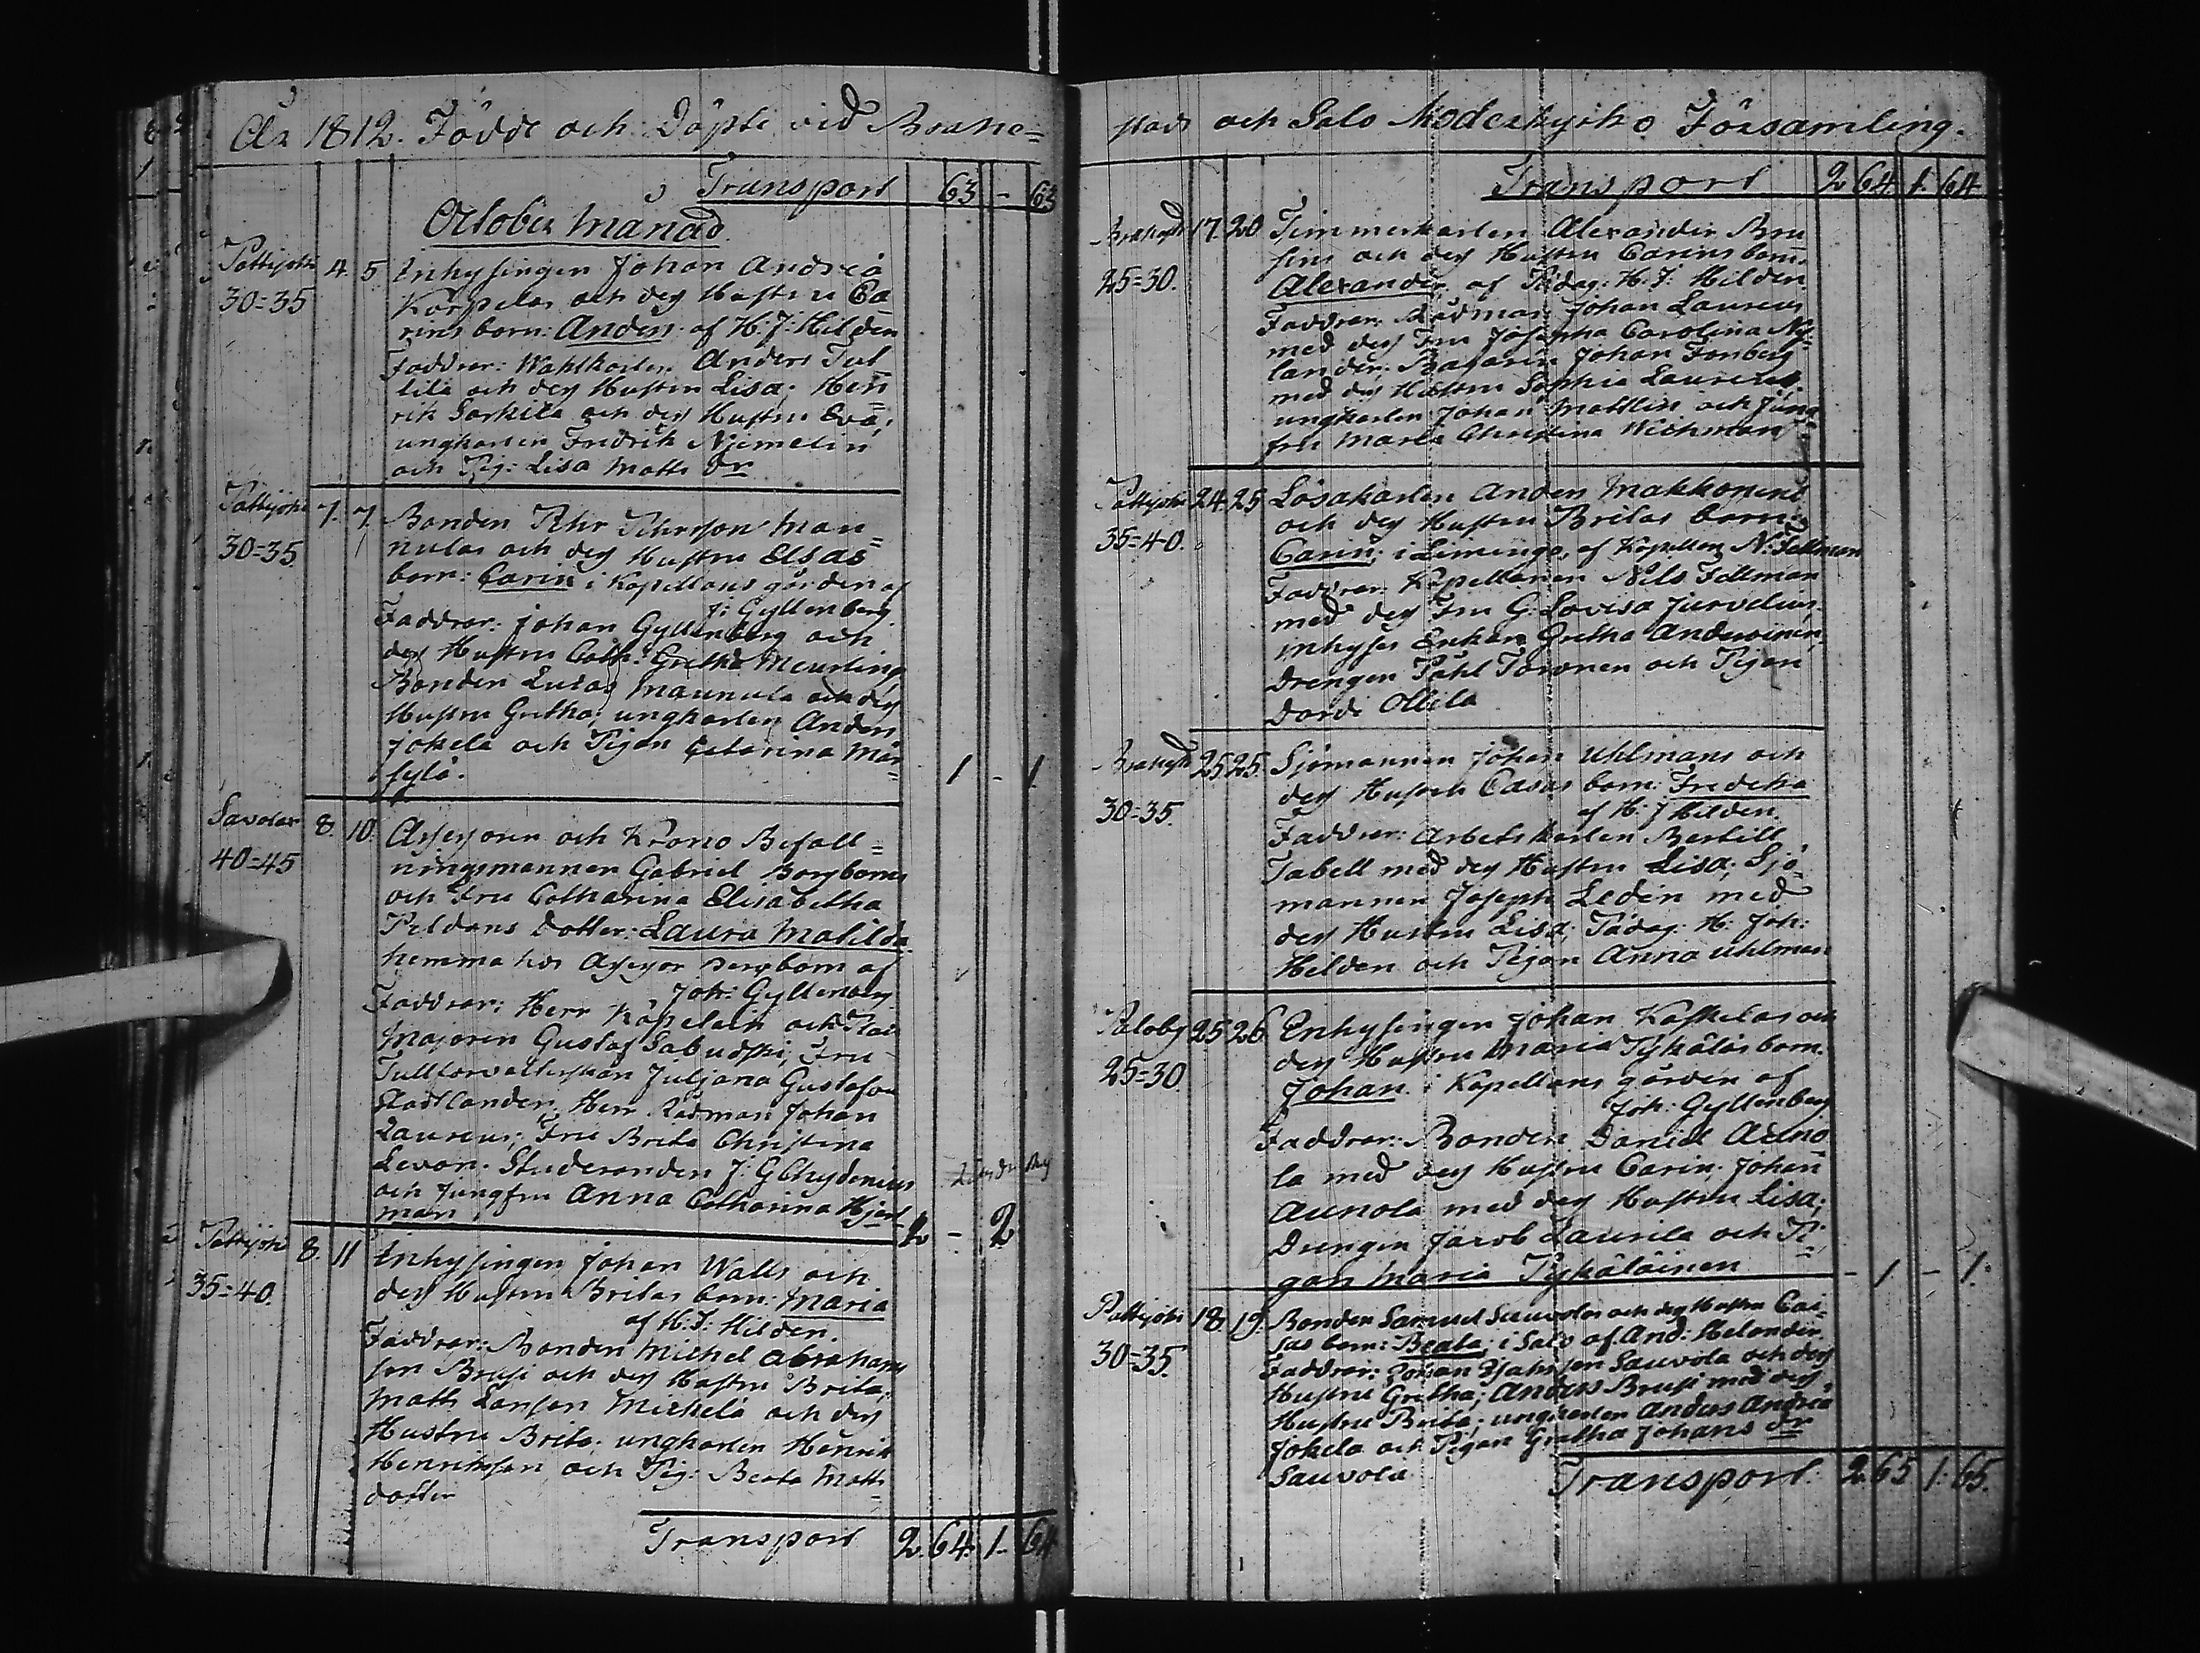 År 1812. Födde och Döpte vid Brahe=
Transport 63 - 63
October Månad
Pattijoki 4. 5. Inhysingen Johan Andreä
30=35 Korpelas och dess Hustru Ca
rins barn: Anders. af H: J: Hilden
Faddrar: Wahlkarlen Anders Tul
lila och dess Hustru Lisa; Hen
rik Sarkila och dess Hustru Eva;
ungkarlen Fredrik Njemelin
och Pig: Lisa Matts dr
Pattijoki 7. 7. Bonden Pehr Pehrsson Man=
30=35. nulas och dess Hustru Elsas
barn: Carin i Kapellans gården af
J: Gyllenberg.
Faddrar: Johan Gyllenberg och
dess Hustru Cath: Gretha Meurling
Bonden Lucas Maunula och dess
Hustru Gretha; ungkarlen Anders
Jokela och Pigan Catarina Mär
sylä. 1 - 1
Savolax 8. 10. Assessoren och Krono Befall=
40=45 ningsmannen Gabriel Borgboms
och Fru Catharina Elisabetha
Peldans Dotter: Laura Matilda
hemma hos Assessor Borgbom af
Joh: Gyllenberg
Faddrar: Herr Kapelain och
Majoren Gustaf Sabudski; Fru
Tullförvalterskan Juljana Gustafva
Stadtlander; Herr Rådman Johan
Laureus; Fru Brita Christina
Levon. Studeranden J: G Chydenius
och Jungfru Anna Catharina Hjert
man. 2 - 2
Pattijoki 8. 11 Inhysingen Johan Walls och
35=40. dess Hustru Britas barn: Maria
af H: J: Hilden.
Faddrar: Bonden Michel Abrahams
son Brusi och dess Hustru Brita;
Matts Larsson Mickelä och dess
Hustru Brita. ungkarlen Henrik
Henriksson och Pig: Beata Matts
dotter
Transport 2. 64. 1 - 64
stads och Salo Moderkyrko Församling.
Transport 2 64. 1. 64
Brahestd 17. 20 Timmerkarlen Alexander Bru
25=30. sins och dess Hustru Carins barn
Alexander, af Pädag: H: J: Hilden
Faddrar: Rådman Johan Laureus
med dess Fru Josepha Carolina Ny
lander; Bagaren Johan Forsberg
med dess Hustru Sophia Laureus.
ungkarlen Johan Mattlin och Jung
fru Maria Christina Wichman
Pattijoki 24. 25 Lösakarlen Anders Makkonens
35=40. och dess Hustru Britas barn:
Carin; i Limingo, af Kapellan N: Fellman
Faddrar: Kapellanen Nils Fellman
med dess Fru G: Lovisa Jurvelius.
inhyses Enkan Gretha Andersoinen,
Drengen Påhl Toronen och Pigan
Dordi Ollila
Brahestd 25. 25. Sjömannen Johan Uhlmans och
30=35. dess Hustru Casas barn: Fredrika
af H: J Hilden.
Faddrar: Arbetskarlen Bertill
Tabell med dess Hustru Lisa; Sjö
mannen Joseph Ledin med
dess Hustru Lisa; Pädag: H: Joh:
Hilden och Pigan Anna Uhlman
Paloby 25. 26 Inhysingen Johan Koskelas och
25=30 dess Hustru Maria Tykäläs barn.
Johan. i Kapellans gården af
Joh: Gyllenberg
Faddrar: Bonden Daniel Auno
la med dess Hustru Carin; Johan
Aunola med dess Hustru Lisa;
Drengen Jacob Laurila och Pi
gan Maria Tykäläinen - 1 - 1.
Pattijoki 18. 19. Bonden Samuel Sauvolas och dess Hustru Cai
30=35. sas barn: Beata; i Salo af And: Helander.
Faddrar: Johan Isaksson Sauvola och dess
Hustru Gretha; Anders Brusi med dess
Hustru Brita; ungkarlen Anders Andreä
Jokela och Pigan Gretha Johans dr
Sauvola
Transport. 2. 65 1. 65.